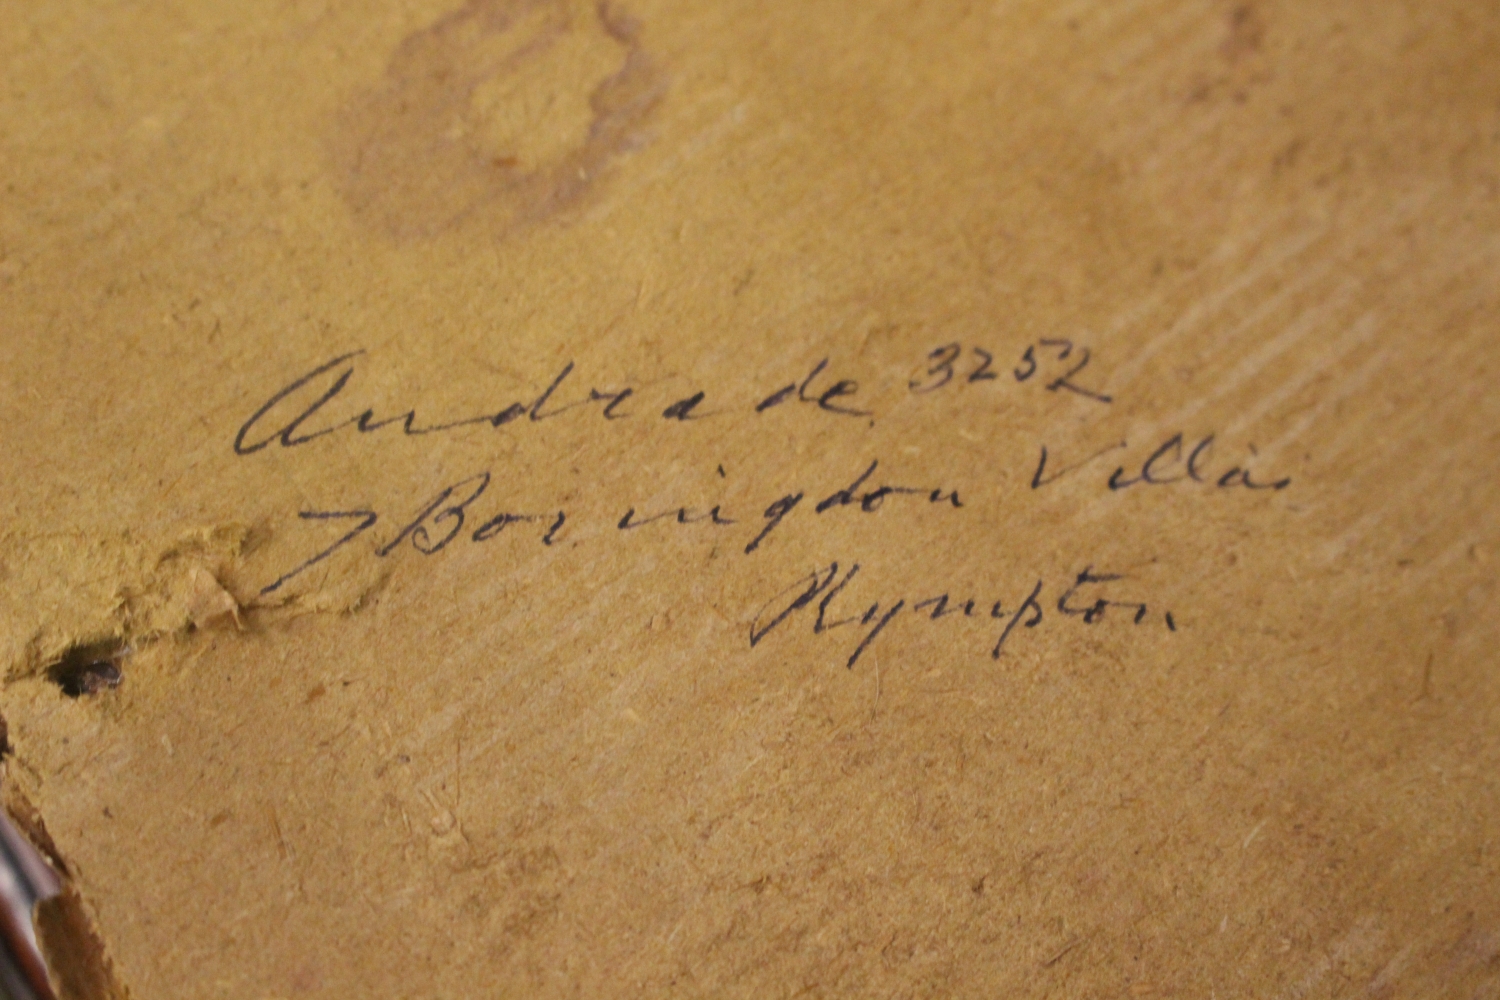 Andrade 3252
7 Boringdon Villas
Plympton